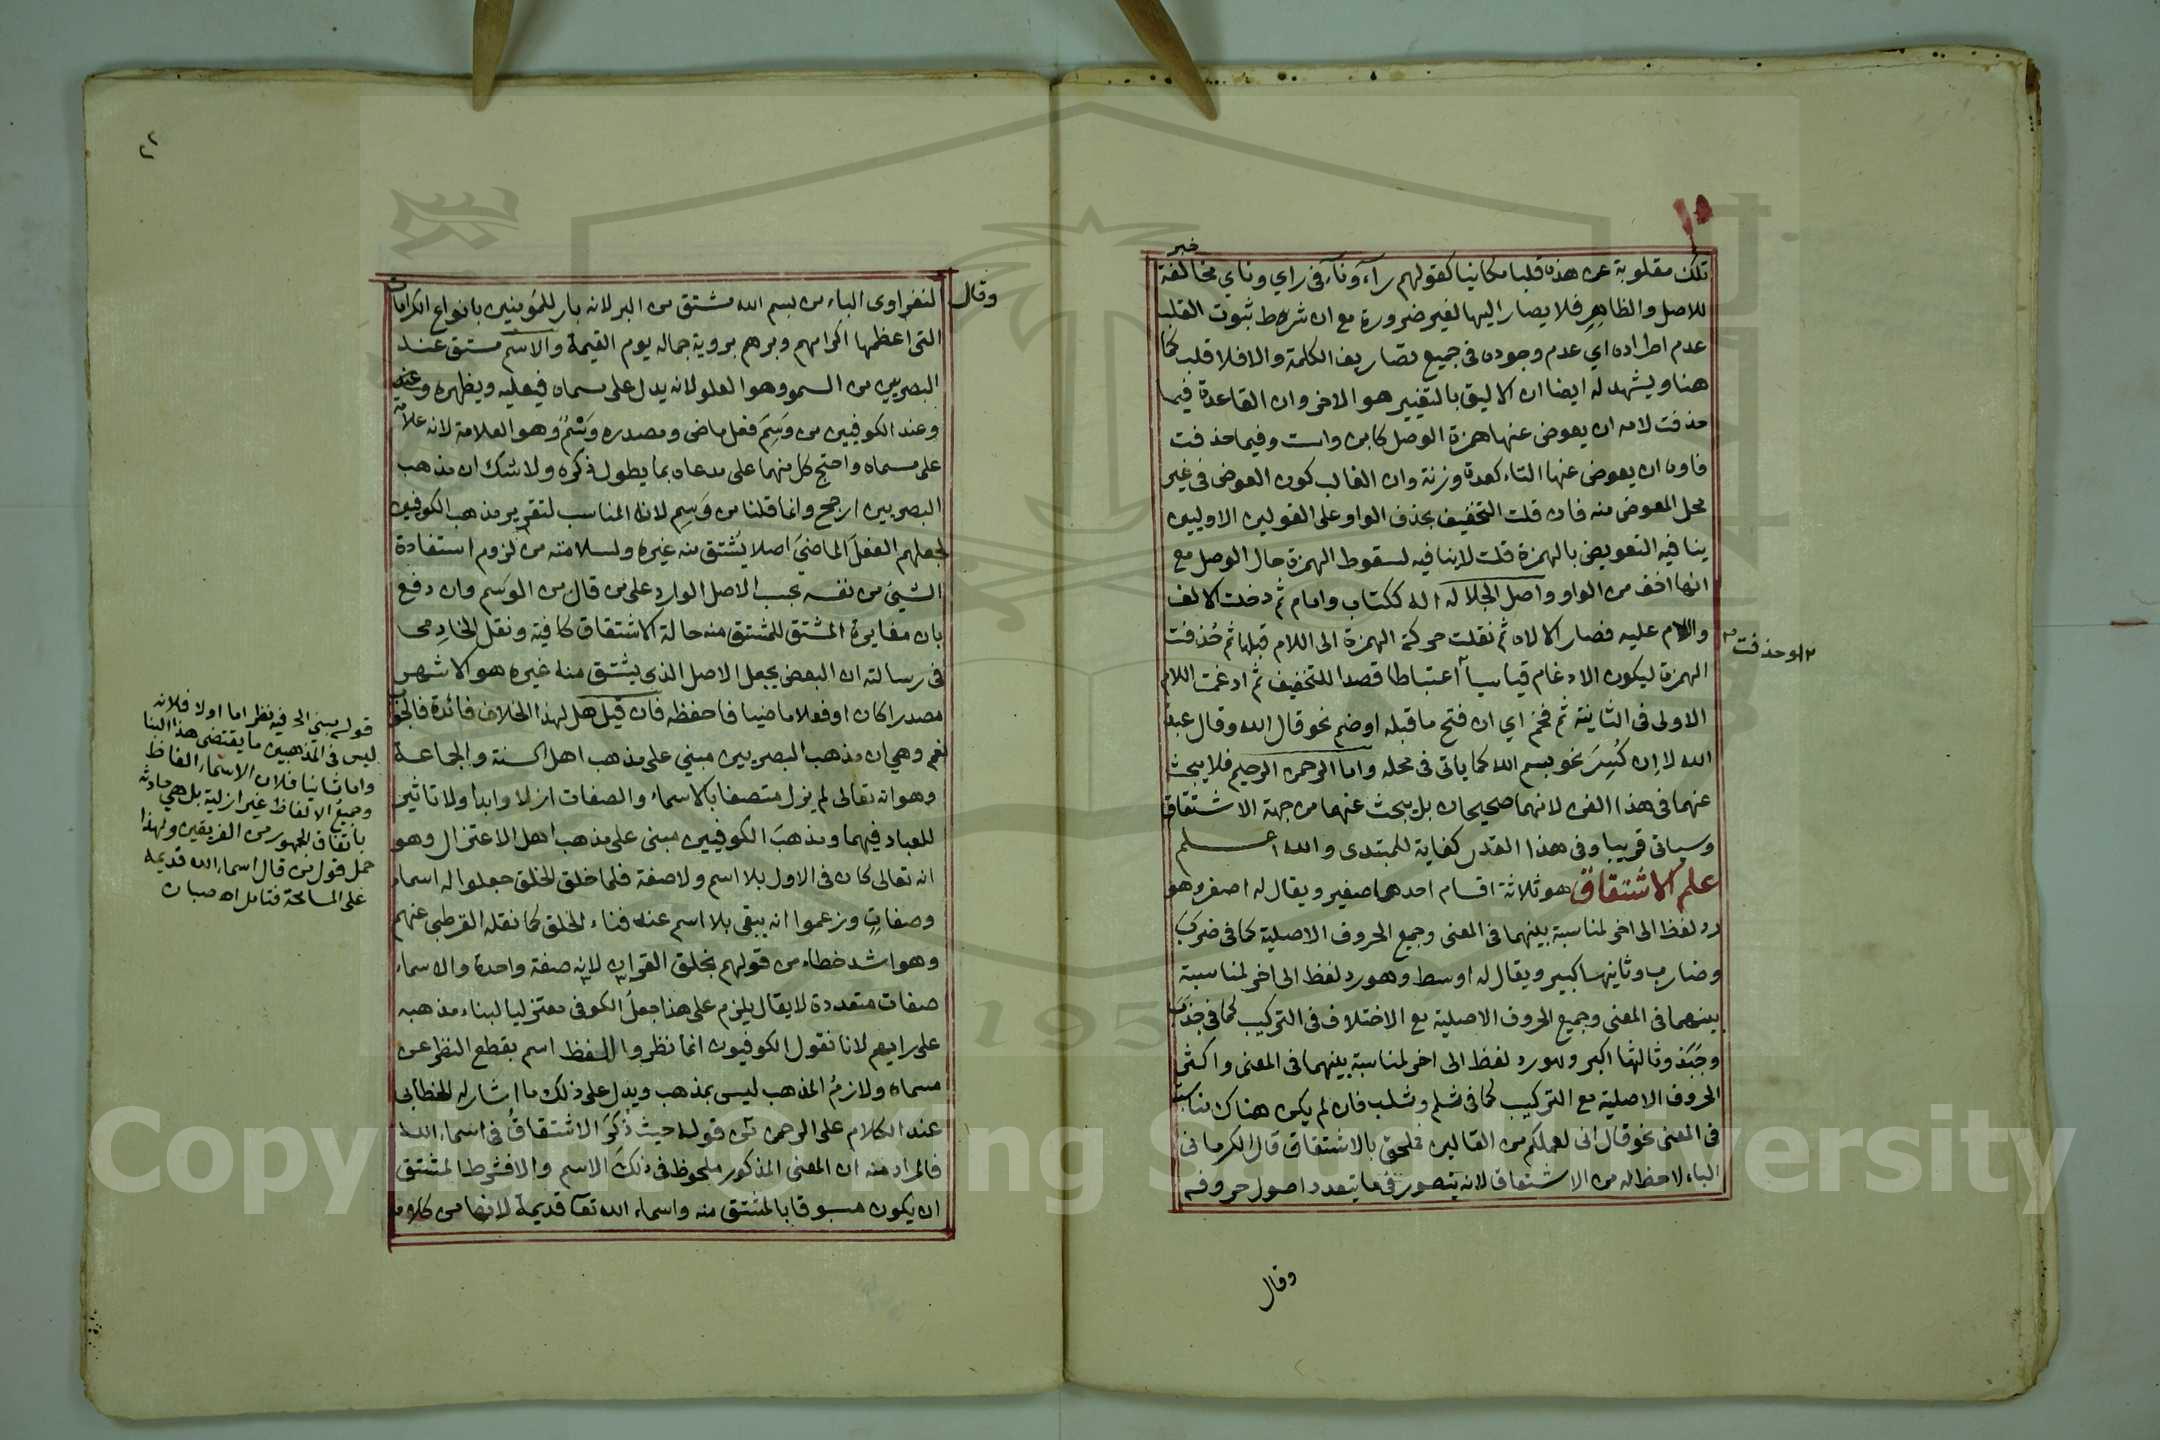 تلك مقلوبة عن هذه قلبا مكانيا كقولهم رآء وناء في راي وناي مخالفة
خبر
للاصل والظاهر فلا يصار اليها لغير ضرورة مع ان شرط ثبوت القلب
عدم اطراده اي عدم وجوده في جميع تصاريف الكلمة والا فلا قلب كما
هنا ويشهد له ايضا ان الاليق بالتغيير هو الاخر وان القاعدة فيما
حذفت لامه ان يعوض عنها همزة الوصل كابن واست وفيما حذفت
فاوه ان يعوض عنها التاء كعدة وزنة وان الغالب كون العوض في غير
محل المعوض منه فان قلت التخفيف بحذف الواو على القولين الاوليين
ينافيه التعويض بالهمزة قلت لا ينافيه لسقوط الهمزة حال الوصل مع
انها اخف من الواو واصل الجلالة اله ككتاب وامام ثم دخلت الالف
واللام عليه فصار الالاه ثم نقلت حركة الهمزة الى اللام قبلها ثم حُذفت
او حذفت
الهمزة ليكون الادغام قياسياً اعتباطا قصدا للتخفيف ثم ادغمت اللام
الاولى في الثانية ثم فخم اي ان فتح ما قبله او ضم نحو قال الله وقال عبد
الله لا اِن كُسِرَ نحو بسم الله كما ياتي في محله واما الرحمن الرحيم فلا يبحث
عنهما في هذا الفن لانهما صحيحان بل يبحث عنهما من جهة الاشتقاق
وسياتي قريبا وفي هذا القدر كفاية للمبتدى والله اعلم
علم الاشتقاق هو ثلاثة اقسام احدها صغير ويقال له اصغر وهو
رد لفظ الى اخر لمناسبة بينهما في المعنى وجميع الحروف الاصلية كما في ضرب
وضارب وثانيها كبير ويقال له اوسط وهو رد لفظ الى اخر لمناسبة
بينهما في المعنى وجميع الحروف الاصلية مع الاختلاف في التركيب كما في جذب
وجبذ وثالثها اكبر وهو رد لفظ الى اخر لمناسبة بينهما في المعنى واكثر
الحروف الاصلية مع التركيب كما في ثلم وثلب فان لم يكن هناك تناسب
في المعنى نحو قال اني لعملكم من القالين فملحق بالاشتقاق قال الكرماني
الباء لا حظ له من الاشتقاق لانه يتصور في ما يتعدد اصول حروفه
وقال
وقال
النفراوى الباء من بسم الله مشتق من البر لانه بار للمؤمنين بانواع الكرامات
التي اعظمها اكرامهم وبرهم بروية جماله يوم القيمة والاسم مشتق عند
البصريين من السمو وهو العلو لانه يدل على مسماه فيعليه ويظهره وعند
وعند الكوفيين من وَسِمَ فعل ماضى ومصدره وَسْمٌ وهو العلامة لانه علامة
على مسماه واحتج كل منهما على مدعاه بما يطول ذكره ولا شك ان مذهب
البصريين ارجح وانما قلنا من وَسِم لانه المناسب لتقرير مذهب الكوفيين
لجعلهم الفعلَ الماضيَ اصلا يُشتق منه غيره ولسلامته من لزوم استفادة
الشيئ من نفسه بحسب الاصل الوارد على من قال من الوَسم وان دفع
بان مغايرة المشتق للمشتق منه حالة الاشتقاق كافية ونقل الخادِمى
في رسالته ان البعض يجعل الاصل الذي يشتق منه غيره هو الاشهر
مصدرا كان او فعلا ماضيا فاحفظه فان قيل هل لهذا الخلاف فائدة فالجواب
نعم وهي ان مذهب البصريين مبني على مذهب اهل السنة والجماعة
وهو انه تعالى لم يزل متصفا بالاسماء والصفات ازلا وابدا ولا تاثير
للعباد فيهما ومذهبَ الكوفيين مبنى على مذهب اهل الاعتزال وهو
انه تعالى كان في الاول بلا اسم ولا صفة فلما خلق الخلق جعلوا له اسماء
وصفاتٍ وزعموا انه يبقى بلا اسم عند فناء الخلق كما نقله القرطبي عنهم
وهو اشد خطاء من قولهم بخلق القران لانه صفة واحدة والاسماء
صفات متعددة لا يقال يلزم على هذا جعلُ الكوفى معتزليا لبناء مذهبه
على رايهم لانا نقول الكوفيون انما نظروا الـلفظ اسم بقطع النظر عن
مسماه ولازمُ المذهب ليس بمذهب ويدل على ذلك ما اشار له الخطابى
عند الكلام على الرحمن من قوله حيث ذُكرَ الاشتقاقُ في اسماء الله
فالمراد منه ان المعنى المذكور ملحوظ في ذلك الاسم والا فشرط المشتق
ان يكون مسبوقا بالمشتق منه واسماء الله تعا قديمة لانها من كلامه
قوله مبني الخ فيه نظر اما اولا فلانه
ليس في المذهبين ما يقتضى هذا البنا
واما ثانيا فلان الاسماء الفاظ
وجميع الالفاظ غير ازلية بل هي حادثه
باتفاق الجمهور من الفريقين ولهذا
حمل قول من قال اسماء الله قديمه
على المسامحة فتامل اه صبان
٢٢
Copyright © King Saud University
1957